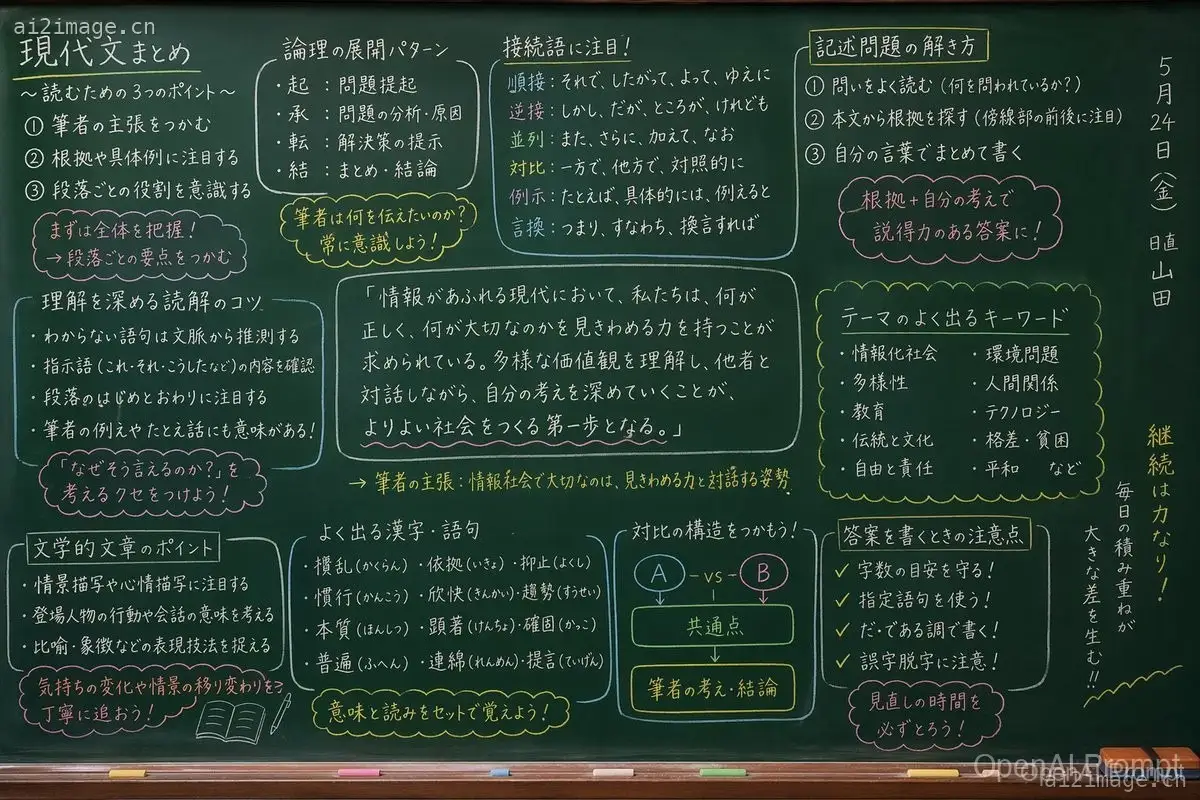 ai2image.cn
現代文まとめ
〜読むための3つのポイント〜
① 筆者の主張をつかむ
② 根拠や具体例に注目する
③ 段落ごとの役割を意識する
まずは全体を把握!
→段落ごとの要点をつかむ
論理の展開パターン
・起 : 問題提起
・承 : 問題の分析・原因
・転 : 解決策の提示
・結 : まとめ・結論
筆者は何を伝えたいのか?
常に意識しよう!
接続語に注目!
順接: それで、したがって、よって、ゆえに
逆接: しかし、だが、ところが、けれども
並列: また、さらに、加えて、なお
対比: 一方で、他方で、対照的に
例示: たとえば、具体的には、例えると
言換: つまり、すなわち、換言すれば
記述問題の解き方
① 問いをよく読む (何を問われているか?)
② 本文から根拠を探す (傍線部の前後に注目)
③ 自分の言葉でまとめて書く
根拠+自分の考えで
説得力のある答案に!
5月24日(金)
山田
理解を深める読解のコツ
・わからない語句は文脈から推測する
・指示語(これ・それ・こうしたなど)の内容を確認
・段落のはじめとおわりに注目する
・筆者の例えやたとえ話にも意味がある!
「なぜそう言えるのか?」を
考えるクセをつけよう!
「情報があふれる現代において、私たちは、何が
正しく、何が大切なのかを見きわめる力を持つことが
求められている。多様な価値観を理解し、他者と
対話しながら、自分の考えを深めていくことが、
よりよい社会をつくる第一歩となる。」
→ 筆者の主張:情報社会で大切なのは、見きわめる力と対話する姿勢.
テーマのよく出るキーワード
・情報化社会 ・環境問題
・多様性 ・人間関係
・教育 ・テクノロジー
・伝統と文化 ・格差・貧困
・自由と責任 ・平和 など
文学的文章のポイント
・情景描写や心情描写に注目する
・登場人物の行動や会話の意味を考える
・比喩・象徴などの表現技法を捉える
気持ちの変化や情景の移り変わりを
丁寧に追おう!
よく出る漢字・語句
・攪乱(かくらん) ・依拠(いきょ) ・抑止(よくし)
・慣行(かんこう) ・欣快(きんかい)・趨勢(すうせい)
・本質(ほんしつ) ・顕著(けんちょ)・確固(かっこ)
・普遍(ふへん) ・連綿(れんめん)・提言(ていげん)
意味と読みをセットで覚えよう!
対比の構造をつかもう!
A -vs- B
共通点
筆者の考え・結論
答案を書くときの注意点
✓ 字数の目安を守る!
✓ 指定語句を使う!
✓ だ・である調で書く!
✓ 誤字脱字に注意!
見直しの時間を
必ずとろう!
継続は力なり!
毎日の積み重ねが
大きな差を生む!!
OpenAI Prompt
ai2image.cn